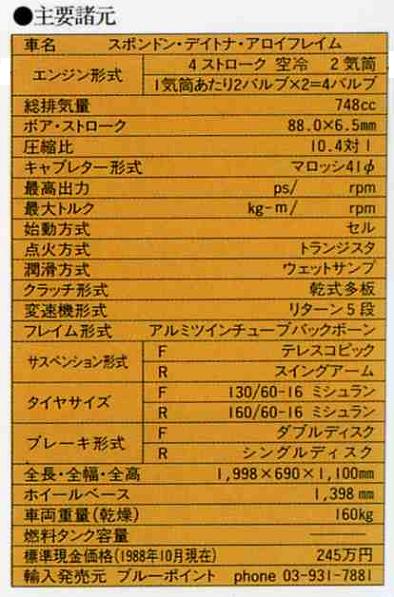 ●主要諸元
車名 スポンドン・デイトナ・アロイフレイム
エンジン形式 4ストローク 空冷 2気筒
1気筒あたり2バルブ×2=4バルブ
総排気量 748cc
ボア・ストローク 88.0×6.5mm
圧縮比 10.4対1
キャブレター形式 マロッシ41φ
最高出力 ps/ rpm
最大トルク kg-m/ rpm
始動方式 セル
点火方式 トランジスタ
潤滑方式 ウェットサンプ
クラッチ形式 乾式多板
変速機形式 リターン5段
フレイム形式 アルミツインチューブバックボーン
サスペンション形式 F テレスコピック
R スイングアーム
タイヤサイズ F 130/60-16 ミシュラン
R 160/60-16 ミシュラン
ブレーキ形式 F ダブルディスク
R シングルディスク
全長・全幅・全高 1,998×690×1,100mm
ホイールベース 1,398 mm
車両重量(乾燥) 160kg
燃料タンク容量 ———
標準現金価格(1988年10月現在) 245万円
輸入発売元 ブルーポイント phone 03-931-7881